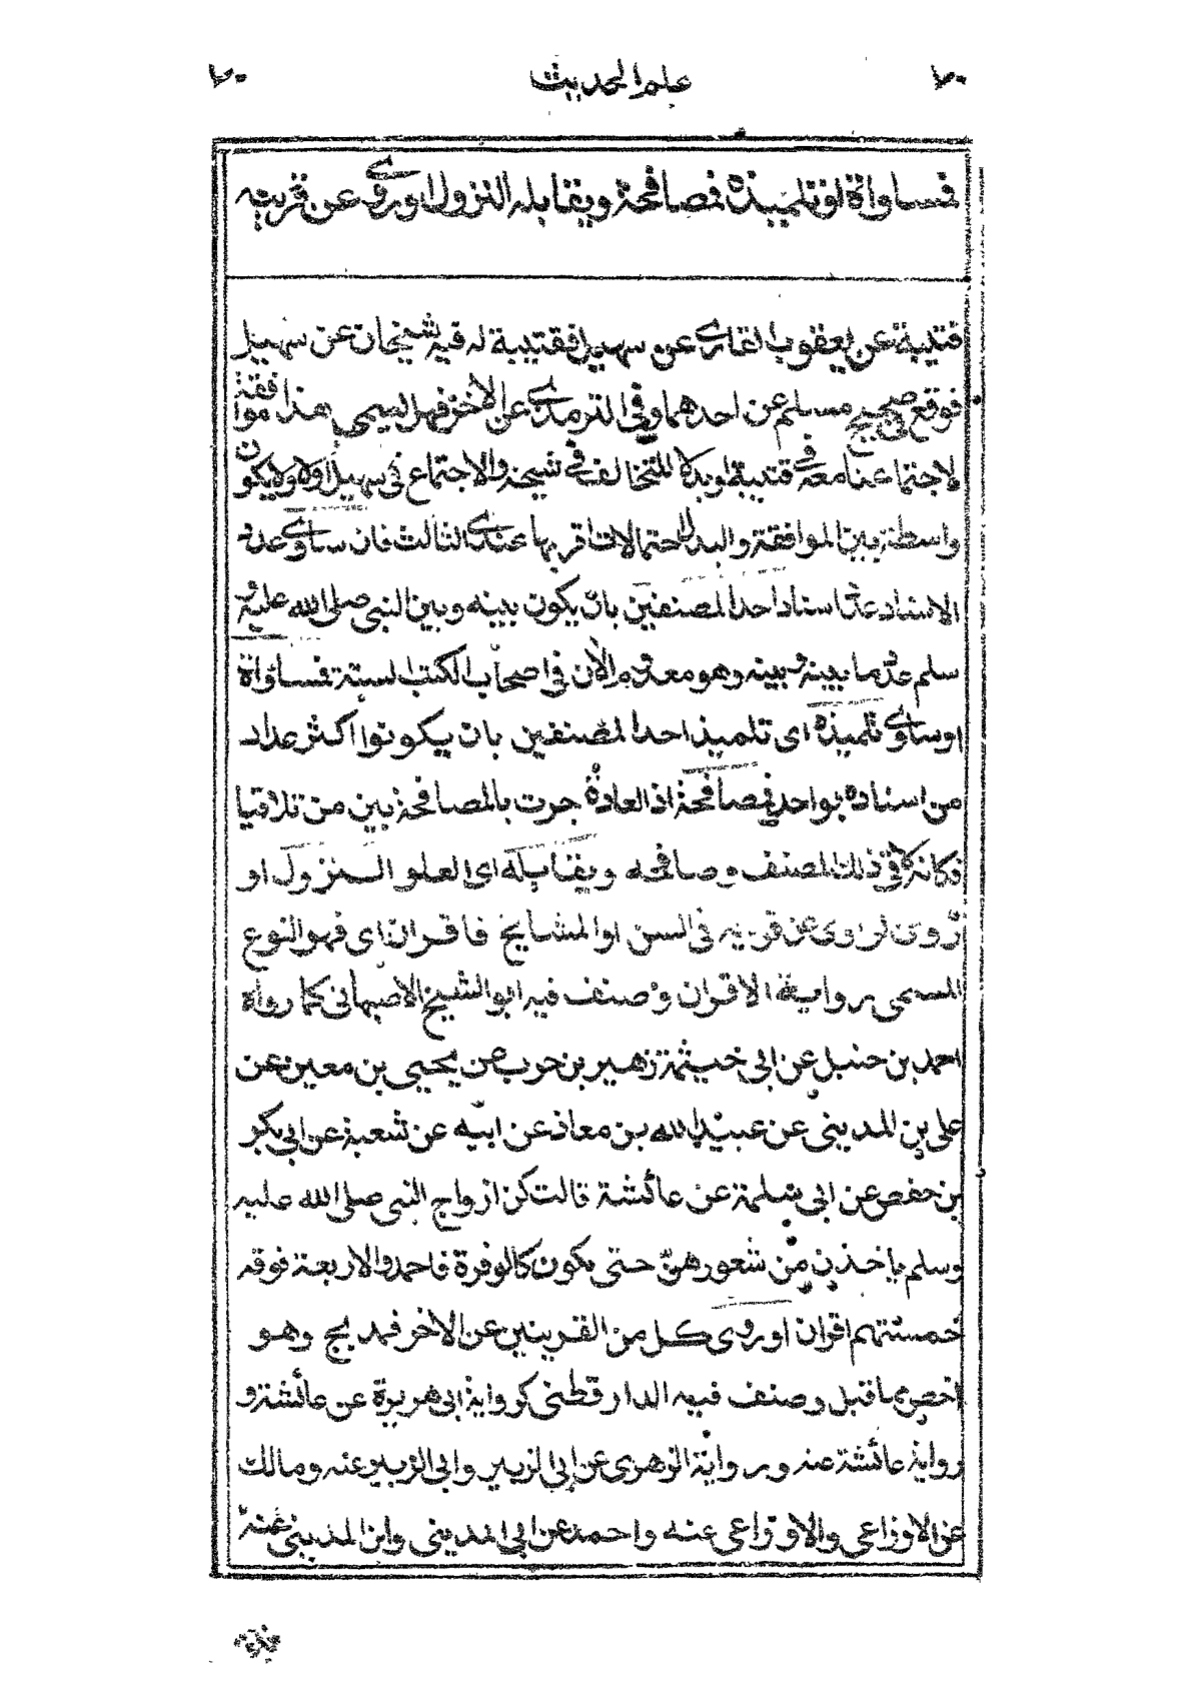 ٧٠ علم الحديث ٧٠
فمساواة او تلميذه فمصافحة ويقابله النزول او روى عن قرينه
قتيبة عن يعقوب القارى عن سهيل فقتيبة له فيه شيخان عن سهيل
فوقع فى صحيح مسلم عن احدهما وفى الترمذى عن الاخر فهل يسمى هذا موافقة
لاجتماعنا معه فى قتيبة او بدلا للتخالف فى شيخه والاجتماع فى سهيل اولا ولا يكون
واسطة بين الموافقة والبدل احتمالات اقربها عندى الثالث فان ساوى عدد
الاسناد عدد اسناد احد المصنفين بان يكون بينه وبين النبى صلى الله عليه و
سلم عدد ما بينه وبينه وهو معدوم الآن فى اصحاب الكتب الستة فمساواة
او ساوى تلميذه اى تلميذ احد المصنفين بان يكونوا اكثر عداد
من اسناده بواحد فمصافحة اذ العادة جرت بالمصافحة بين من تلاقيا
فكانه لاقى ذلك المصنف وصافحه ويقابله اى العلو النزول او
روى لراوى عن قرينه فى السن او المشايخ فاقران اى فهو النوع
المسمى برواية الاقران وصنف فيه ابو الشيخ الاصبهانى كما رواه
احمد بن حنبل عن ابى خيثمة زهير بن حرب عن يحيى بن معين عن
على بن المدينى عن عبيد الله بن معاذ عن ابيه عن شعبة عن ابى بكر
بن حفص عن ابى سلمة عن عائشة قالت كن ازواج النبى صلى الله عليه
وسلم ياخذن من شعورهن حتى يكون كالوفرة فاحمد والاربعة فوقه
خمستهم اقران او روى كل من القرينين عن الاخر فمدبج وهو
اخص مما قبل وصنف فيه الدارقطنى كرواية ابى هريرة عن عائشة و
رواية عائشة عنه و رواية الزهرى عن ابى الزبير وابى الزبير عنه ومالك
عن الاوزاعى والاوزاعى عنه واحمد عن ابى المدينى وابن المدينى عنه